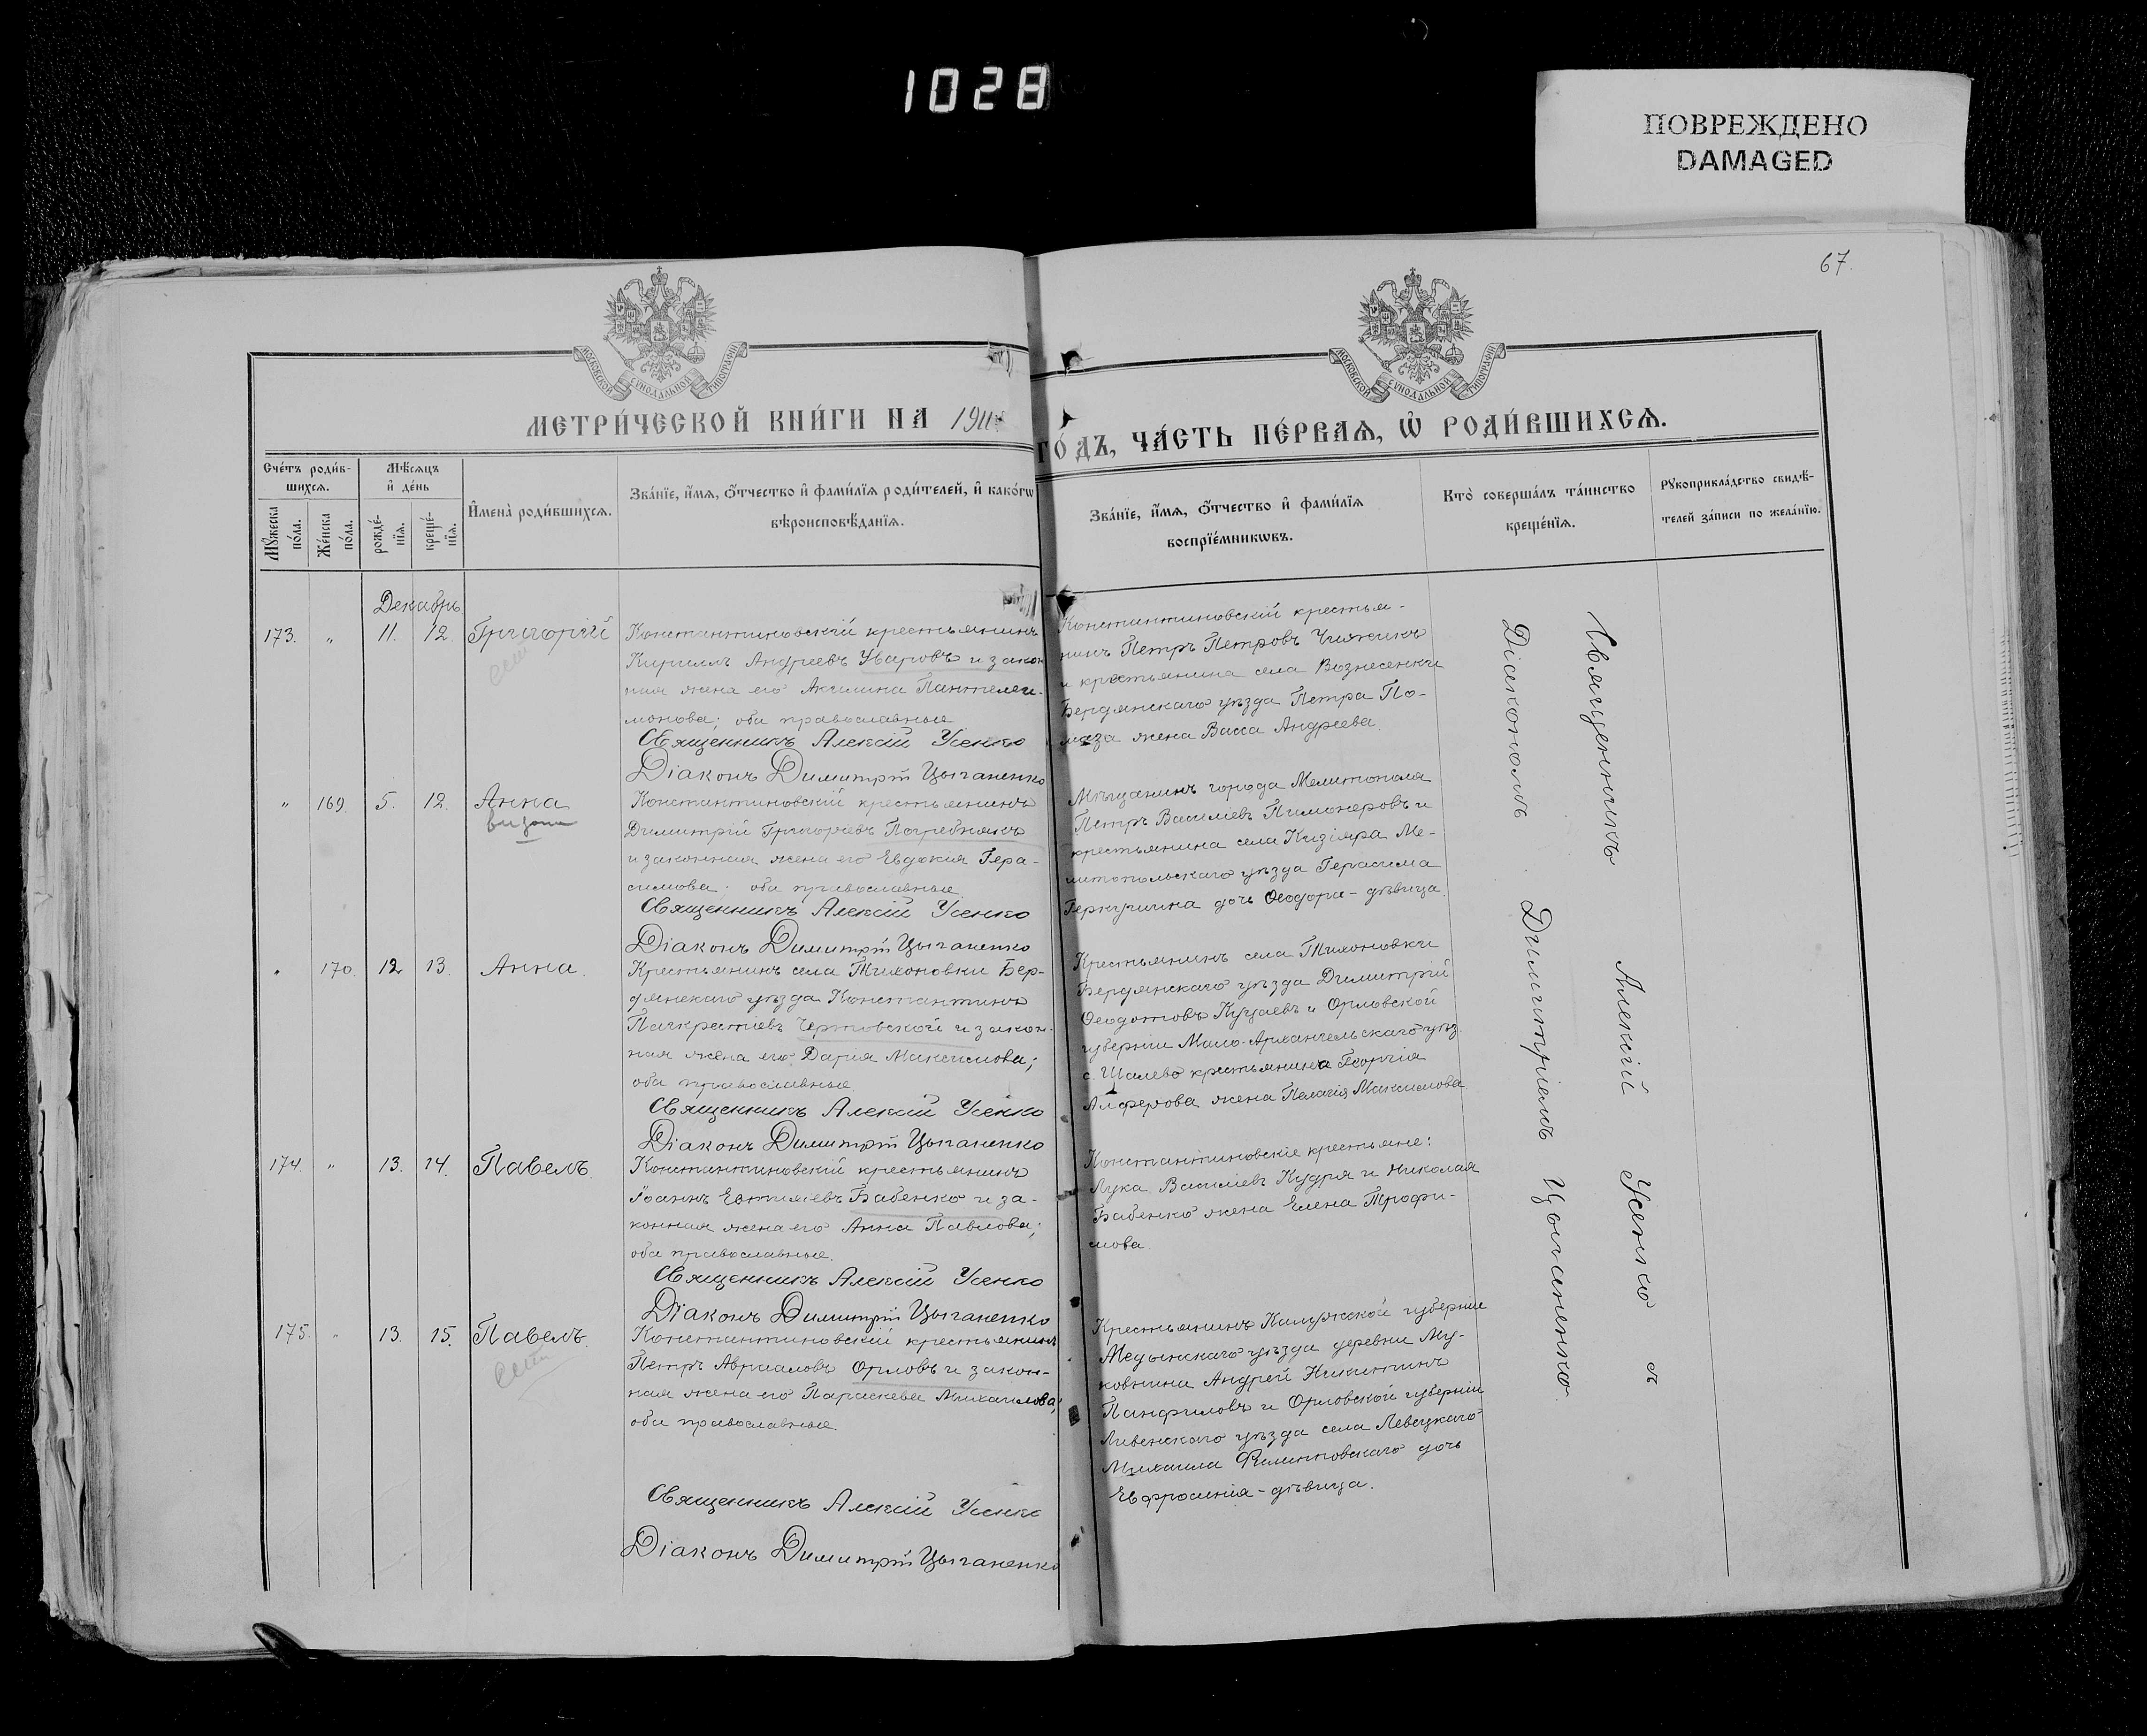 1028
ПОВРЕЖДЕНО
DAMAGED
67.
МОСКОВСКОЙ СѴНОДАЛЬНОЙ ТИПОГРАФІИ
МОСКОВСКОЙ СѴНОДАЛЬНОЙ ТИПОГРАФІИ
МЕТРИ́ЧЕСКОЙ КНИ́ГИ НА 191
ГО́ДЪ, ЧА́СТЬ ПЕ́РВАѦ, Ѡ҆ РОДИ́ВШИХСѦ.
Сче́тъ роди́в-
шихсѧ.
Мѣ́сѧцъ
и҆ де́нь
Мꙋ́жеска
по́ла.
Же́нска
по́ла.
рожде́-
нїѧ.
креще́-
нїѧ.
И҆мена̀ роди́вшихсѧ.
Зва́нїе, и҆́мѧ, ѻ҆́тчество и҆ фами́лїѧ роди́телей, и҆ како́гѡ
вѣроисповѣ́данїѧ.
Зва́нїе, и҆́мѧ, ѻ҆́тчество и҆ фами́лїѧ
воспрїе́мникѡвъ.
Кто̀ соверша́лъ та́инство
креще́нїѧ.
Рꙋкоприкла́дство свидѣ́-
телей за́писи по жела́нїю.
Декабрь
173. " 11. 12. Григорій
Константиновскій крестьянинъ
Кириллъ Андреевъ Уваровъ и закон
ная жена его Акилина Пантелеи-
монова; оба православные
Священникъ Алексій Усенко
Діаконъ Димитрій Цыганенко
Константиновскій крестья-
нинъ Петръ Петровъ Чижикъ
и крестьянина села Вознесенки
Бердянскаго уѣзда Петра По-
маза жена Васса Андреева.
" 169. 5. 12. Анна
Константиновскій крестьянинъ
Димитрій Григоріевъ Погребнякъ
и законная жена его Евдокия Гера-
симова; оба православные
Священникъ Алексій Усенко
Діаконъ Димитрій Цыганенко
Мѣщанинъ города Мелитополя
Петръ Василіевъ Пимонеровъ и
крестьянина села Кизіяра Ме-
литопольскаго уѣзда Герасима
дочь Ѳеодора - дѣвица.
" 170. 12 13. Анна.
Крестьянинъ села Тихоновки Бер-
дянскаго уѣзда Константинъ
Панкратіевъ Чертовской и закон-
ная жена его Дарія Максимова;
оба православные
Священникъ Алексій Усенко
Діаконъ Димитрій Цыганенко
Крестьянинъ села Тихоновки
Бердянскаго уѣзда Димитрій
Ѳеодотовъ Куцаевъ и Орловской
губерніи Мало-Архангельскаго уѣз.
с. Шалево крестьянина Георгія
Алферова жена Пелагія Максимова
174. " 13. 14. Павелъ.
Константиновскій крестьянинъ
Іоаннъ Евтиміевъ Бабенко и за-
конная жена его Анна Павлова;
оба православные.
Священникъ Алексій Усенко
Діаконъ Димитрій Цыганенко
Константиновскіе крестьяне:
Лука Василіевъ Кудря и Николая
Бабенко жена Елена Трофи-
мова.
175. " 13. 15. Павелъ.
Константиновскій крестьянинъ
Петръ Авраамовъ Орловъ и закон-
ная жена его Параскева Михаилова;
оба православные.
Священникъ Алексій Усенко
Діаконъ Димитрій Цыганенко
Крестьянинъ Калужской губерніи
Медынскаго уѣзда деревни Му-
ковнина Андрей Никитинъ
Панфиловъ и Орловской губерніи
Ливенскаго уѣзда села Левецкаго
Михаила Филипповскаго дочь
Евфросинія - дѣвица.
Священникъ Алексій Усенко съ
Діакономъ Димитріемъ Цыганенко.